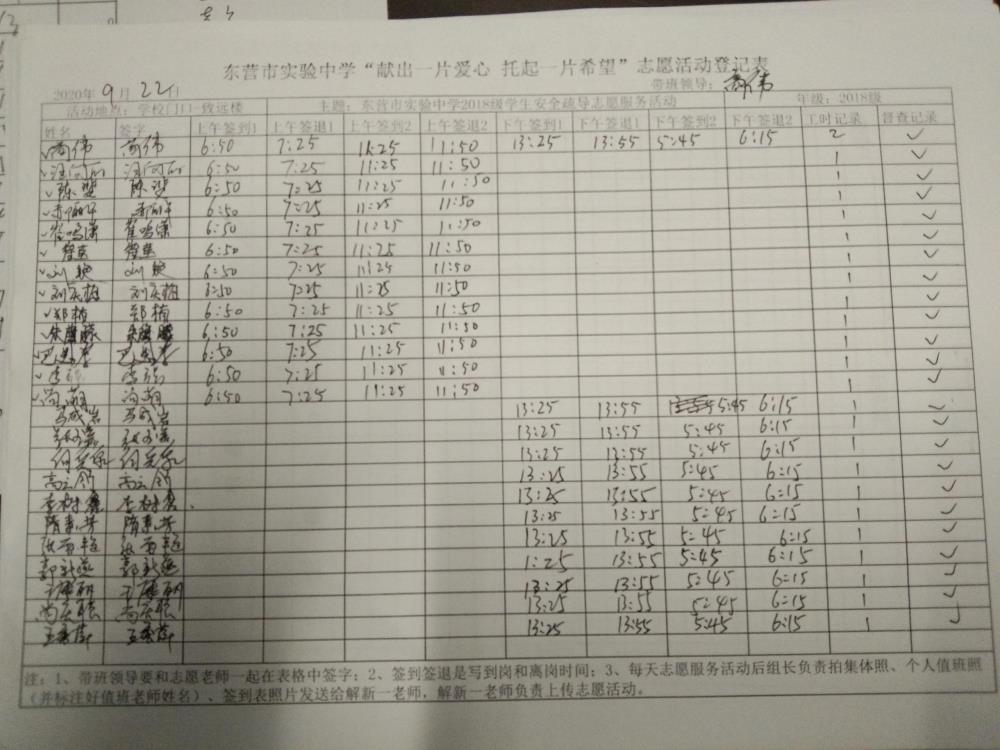 东营市实验中学“献出一片爱心 托起一片希望”志愿活动登记表
2020年 9 月 22日 带班领导: 尚伟
活动地点: 学校门口-致远楼 主题: 东营市实验中学2018级学生安全疏导志愿服务活动 年级: 2018级
姓名 签字 上午签到1 上午签退1 上午签到2 上午签退2 下午签到1 下午签退1 下午签到2 下午签退2 工时记录 督查记录
尚伟 尚伟 6:50 7:25 11:25 11:50 13:25 13:55 5:45 6:15 2 ✓
6:50 7:25 11:25 11:50 1 ✓
陈斐 陈斐 6:50 7:25 11:25 11:50 1 ✓
6:50 7:25 11:25 11:50 1 ✓
崔鸣潇 崔鸣潇 6:50 7:25 11:25 11:50 1 ✓
6:50 7:25 11:25 11:50 1 ✓
6:50 7:25 11:25 11:50 1 ✓
刘庆梅 刘庆梅 6:50 7:25 11:25 11:50 1 ✓
郑楠 郑楠 6:50 7:25 11:25 11:50 1 ✓
6:50 7:25 11:25 11:50 1 ✓
6:50 7:25 11:25 11:50 1 ✓
李强 李强 6:50 7:25 11:25 11:50 1 ✓
尚萌 尚萌 6:50 7:25 11:25 11:50 1 ✓
马成岩 马成岩 13:25 13:55 5:45 6:15 1 ✓
13:25 13:55 5:45 6:15 1 ✓
13:25 13:55 5:45 6:15 1 ✓
13:25 13:55 5:45 6:15 1 ✓
13:25 13:55 5:45 6:15 1 ✓
隋素芳 隋素芳 13:25 13:55 5:45 6:15 1 ✓
13:25 13:55 5:45 6:15 1 ✓
郭新燕 郭新燕 1:25 13:55 5:45 6:15 1 ✓
13:25 13:55 5:45 6:15 1 ✓
13:25 13:55 5:45 6:15 1 ✓
王秀萍 王秀萍 13:25 13:55 5:45 6:15 1 ✓
注: 1、带班领导要和志愿老师一起在表格中签字; 2、签到签退是写到岗和离岗时间; 3、每天志愿服务活动后组长负责拍集体照、个人值班照
(并标注好值班老师姓名)、签到表照片发送给解新一老师, 解新一老师负责上传志愿活动。